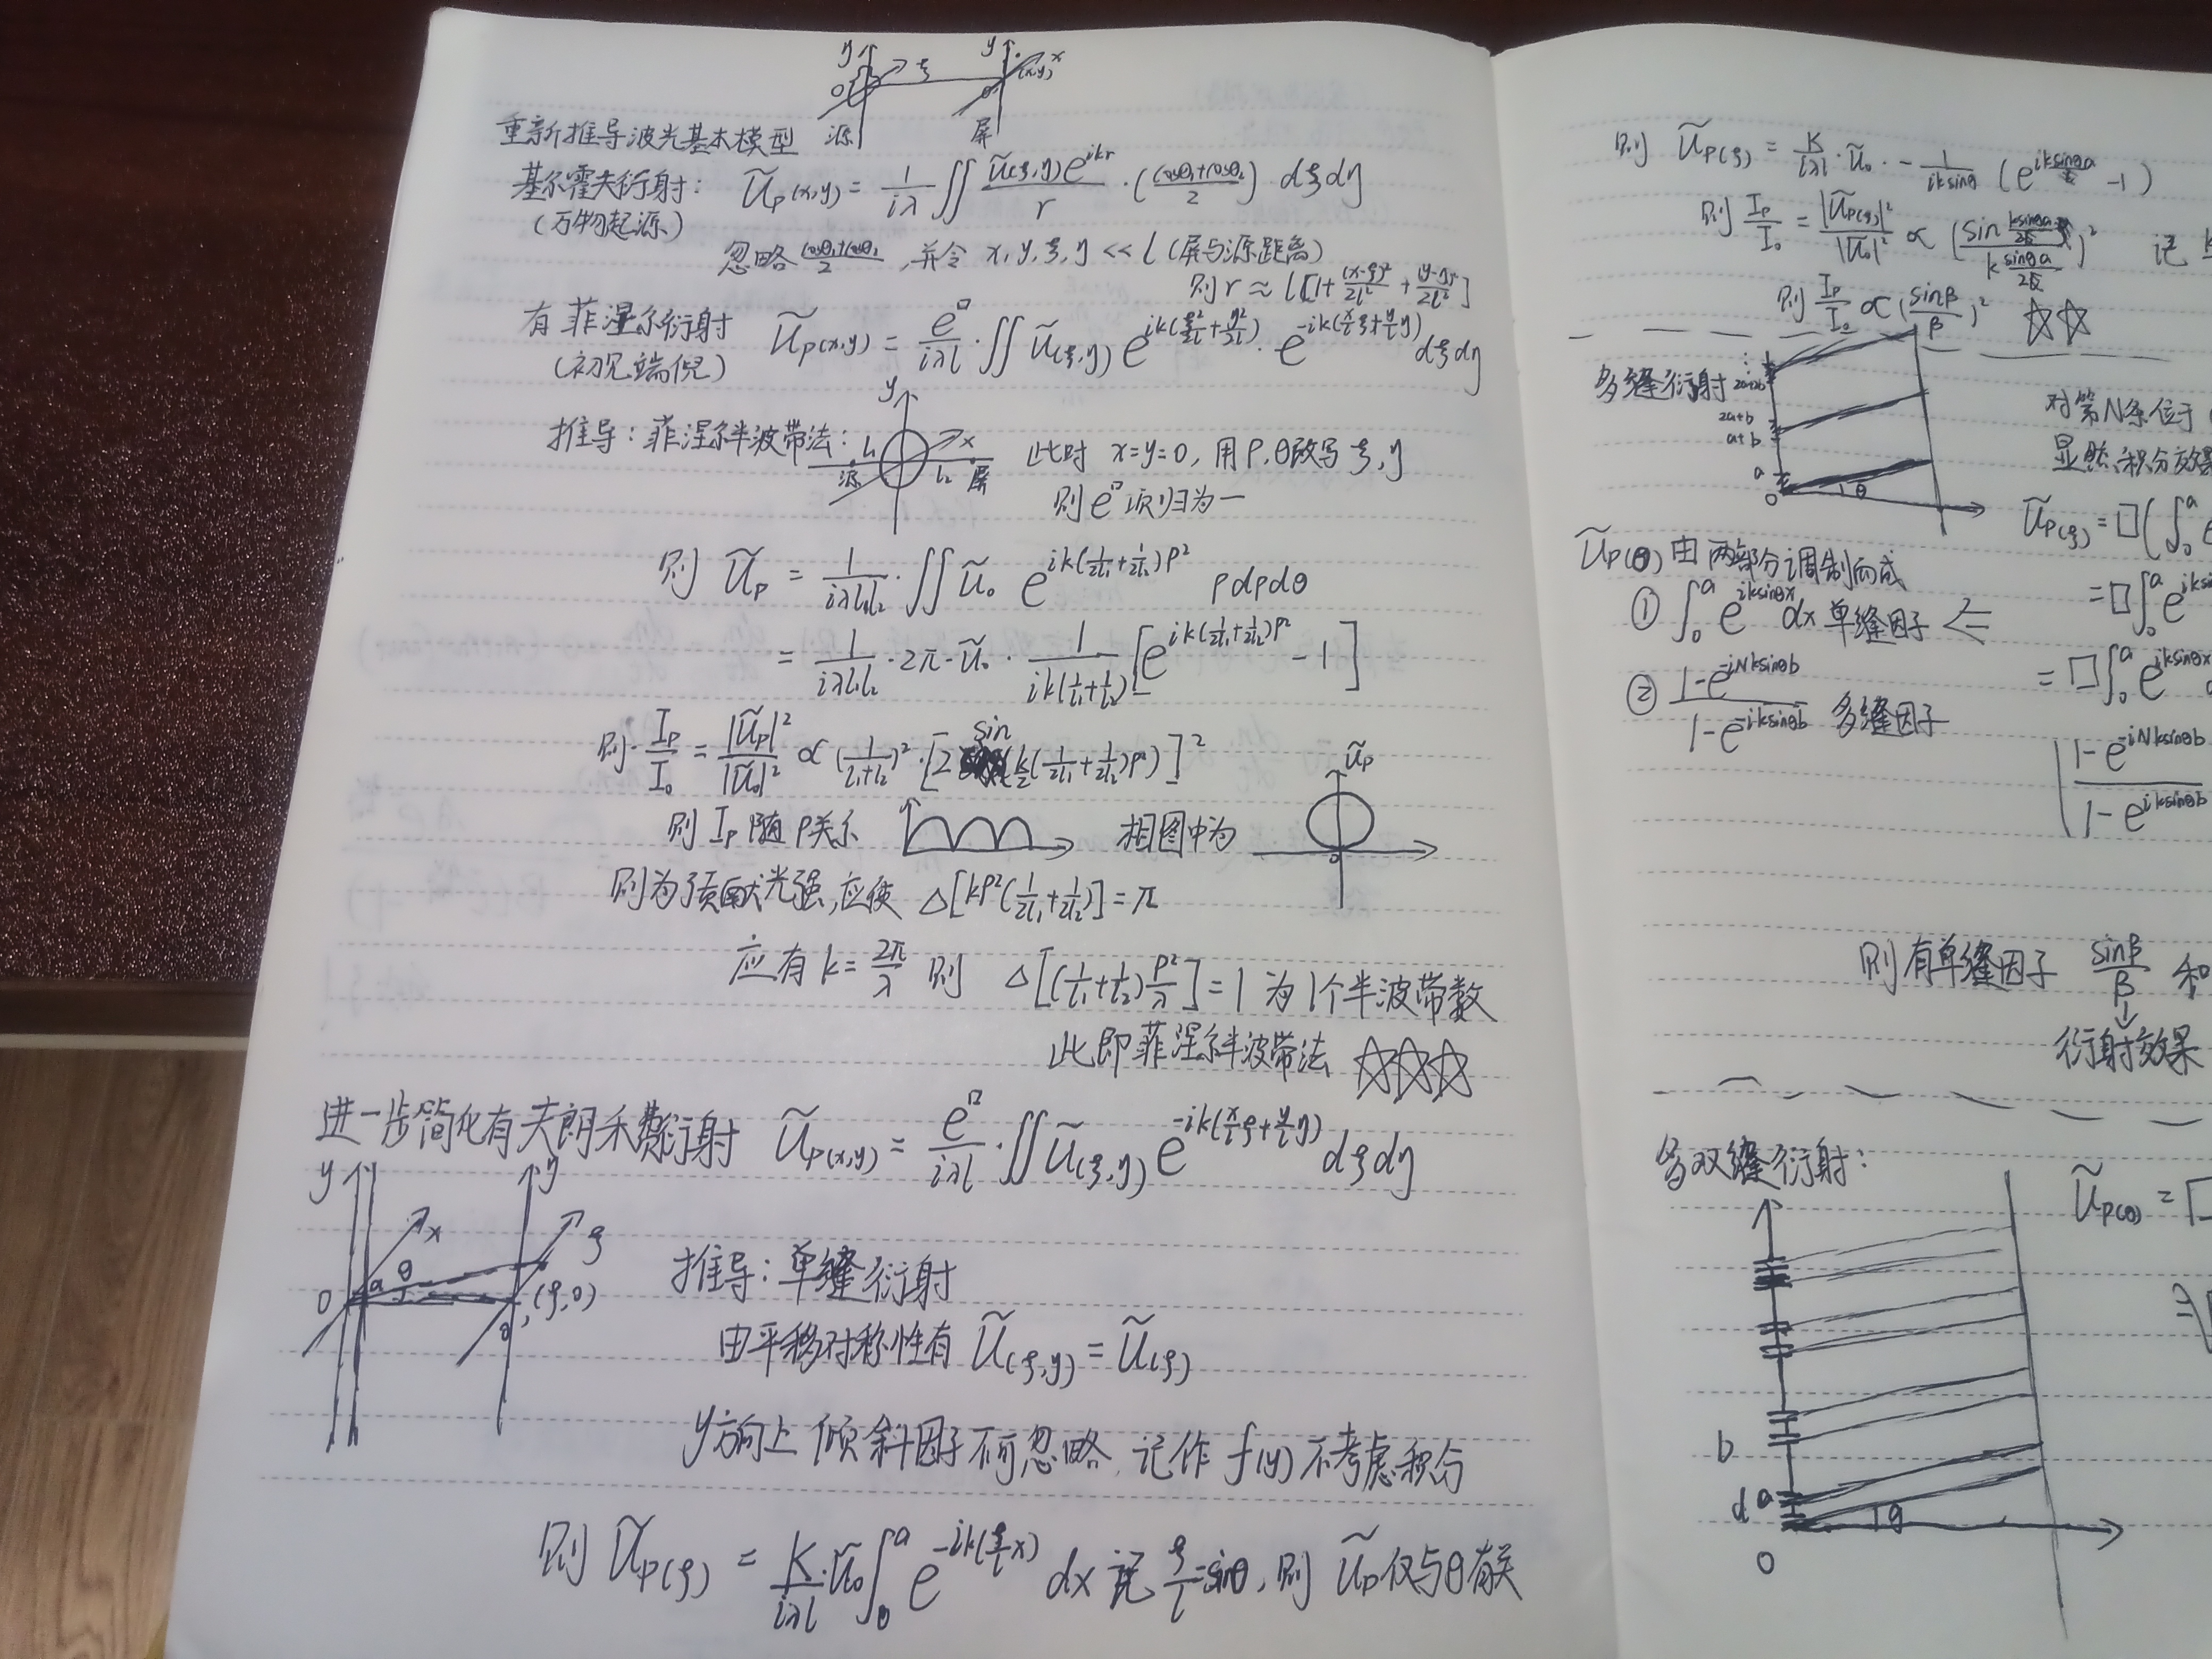 y ξ y x
O O (x,y)
源 屏
重新推导波光基本模型
基尔霍夫衍射: Ũp(x,y) = 1/(iλ) ∬ Ũ(ξ,η)e^{ikr}/r · ((cosθ₁+cosθ₂)/2) dξdη
(万物起源)
忽略 (cosθ₁+cosθ₂)/2, 并令 x,y,ξ,η << l (屏与源距离)
则 r ≈ l[1+(x-ξ)²/2l²+(y-η)²/2l²]
有菲涅尔衍射 Ũp(x,y) = e^□/(iλl) · ∬ Ũ(ξ,η) e^{ik(ξ²/2l+η²/2l)} · e^{-ik(x/l ξ+y/l η)} dξdη
(初见端倪)
推导: 菲涅尔半波带法: 此时 x=y=0, 用ρ,θ改写ξ,η
y x l₁ l₂ 源 屏
则e^□项归为一
则 Ũp = 1/(iλl₁l₂) · ∬ Ũ₀ e^{ik(1/2l₁+1/2l₂)ρ²} ρdρdθ
= 1/(iλl₁l₂) · 2π · Ũ₀ · 1/(ik(1/l₁+1/l₂)) [e^{ik(1/2l₁+1/2l₂)ρ²} - 1]
则 Ip/I₀ = |Ũp|²/|Ũ₀|² ∝ (1/(l₁+l₂))² · [2 sin(k/2(1/2l₁+1/2l₂)ρ²)]²
则 Ip 随ρ关系 相图中为 Ũp
则为了贡献光强, 应使 Δ[kρ²(1/2l₁+1/2l₂)] = π
应有 k = 2π/λ 则 Δ[(1/l₁+1/l₂)ρ²/λ] = 1 为1个半波带数
此即菲涅尔半波带法 ☆☆☆
进一步简化有夫朗禾费衍射 Ũp(x,y) = e^□/(iλl) · ∬ Ũ(ξ,η) e^{-ik(x/l ξ+y/l η)} dξdη
y x y ξ
O a θ (ξ,0)
推导: 单缝衍射
由平移对称性有 Ũ(ξ,y) = Ũ(ξ)
y方向上倾斜因子不可忽略, 记作 f(y) 不考虑积分
则 Ũp(ξ) = K/(iλl) · Ũ₀ ∫₀^a e^{-ik(ξ/l x)} dx 记 ξ/l = sinθ, 则 Ũp 仅与θ有关
则 Ũp(ξ) = K/(iλl) · Ũ₀ · -1/(ik sinθ) (e^{ik sinθ a} - 1)
则 Ip/I₀ = |Ũp(ξ)|²/|Ũ₀|² ∝ (sin(k sinθ a/2)/(k sinθ a/2))² 记
则 Ip/I₀ ∝ (sinβ/β)² ☆☆
多缝衍射 对第N条位于
2a+2b
2a+b
a+b
a
O θ
显然, 积分效果
Ũp(ξ) = □(∫₀^a e
Ũp(θ) 由两部分调制而成
= □∫₀^a e^{ik sin
① ∫₀^a e^{ik sinθx} dx 单缝因子 ⇐
= □∫₀^a e^{ik sinθx}
② (1-e^{-iNk sinθb})/(1-e^{-ik sinθb}) 多缝因子
|(1-e^{-iNk sinθb})/(1-e^{ik sinθb})
则有单缝因子 sinβ/β 和
↓
衍射效果
双缝衍射: Ũp(θ) =
b
d a
O θ